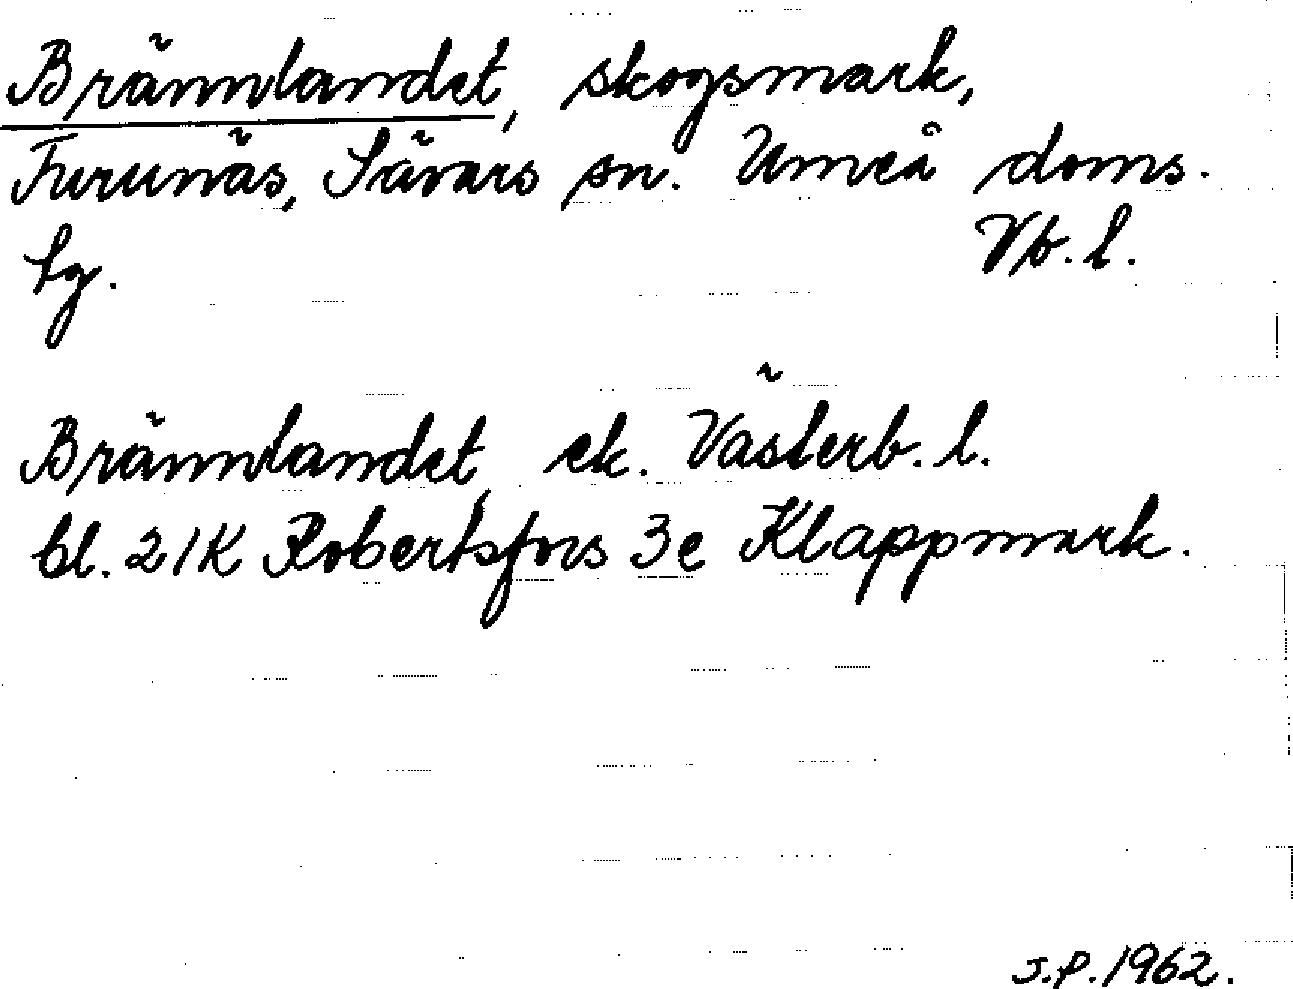 Brännlandet, skogsmark,
Furunäs, Sävars sn. Umeå doms.
sg. Vb. l.
Brännlandet, ek. Västerb. l.
bl. 21K Robertsfors 3e Klappmark.
J.P. 1962.